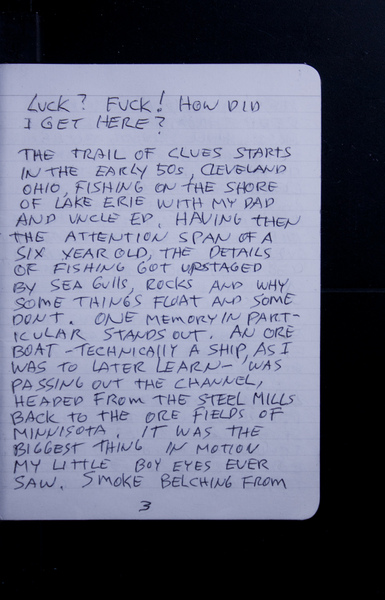 LUCK? FUCK! HOW DID
I GET HERE?
THE TRAIL OF CLUES STARTS
IN THE EARLY 50s, CLEVELAND
OHIO, FISHING ON THE SHORE
OF LAKE ERIE WITH MY DAD
AND UNCLE ED. HAVING THEN
THE ATTENTION SPAN OF A
SIX YEAR OLD, THE DETAILS
OF FISHING GOT UPSTAGED
BY SEA GULLS, ROCKS AND WHY
SOME THINGS FLOAT AND SOME
DONT. ONE MEMORY IN PART-
ICULAR STANDS OUT. AN ORE
BOAT - TECHNICALLY A SHIP, AS I
WAS TO LATER LEARN - WAS
PASSING OUT THE CHANNEL,
HEADED FROM THE STEEL MILLS
BACK TO THE ORE FIELDS OF
MINNISOTA. IT WAS THE
BIGGEST THING IN MOTION
MY LITTLE BOY EYES EVER
SAW. SMOKE BELCHING FROM
3